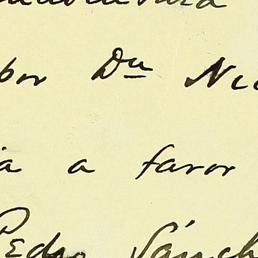 por Dn Nic
ia a favor
Pedro Sánch